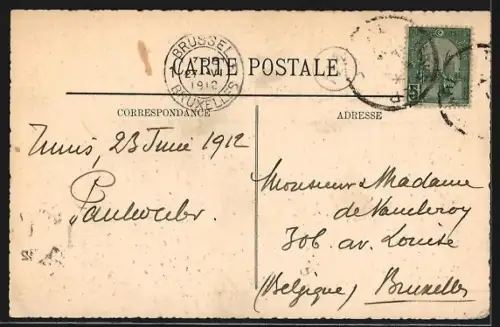 BRUSSEL
1912
BRUXELLES
CARTE POSTALE
5
CORRESPONDANCE
ADRESSE
Tunis, 23 Juin 1912
Monsieur & Madame
de
306 av. Louise
(Belgique) Bruxelles